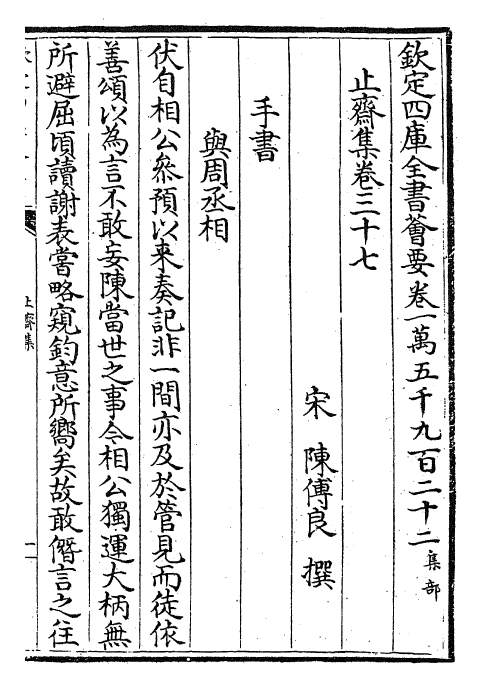 欽定四庫全書薈要卷一萬五千九百二十二集部
止齋集卷三十七
宋　陳傅良　撰
手書
與周丞相
伏自相公叅預以来奏記非一間亦及於管見而徒依
善頌以為言不敢妄陳當世之事今相公獨運大柄無
所避屈頃讀謝表嘗略窺鈞意所嚮矣故敢僭言之往
止齋集